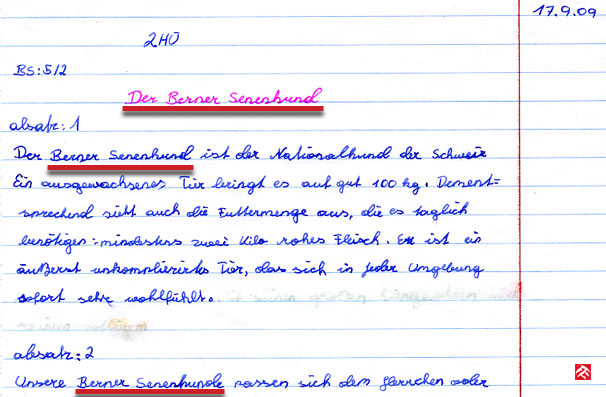 17.9.09
2HÜ
BS:5/2
Der Berner Senenhund
absatz:1
Der Berner Senenhund ist der Nationalhund der Schweiz
Ein ausgewachsenes Tür bringt es auf gut 100 kg. Dement=
sprechend sieht auch die Futtermenge aus, die es täglich
benötigen: mindestens zwei Kilo rohes Fleisch. Er ist ein
äußerst unkompliziertes Tier, das sich in jeder Umgebung
sofort sehr wohlfühlt.
absatz:2
Unsere Berner Senenhunde passen sich dem